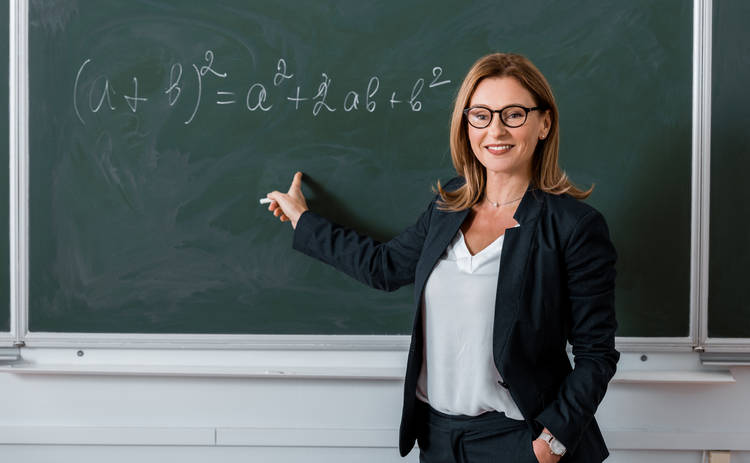 (a+b)²=a²+2ab+b²